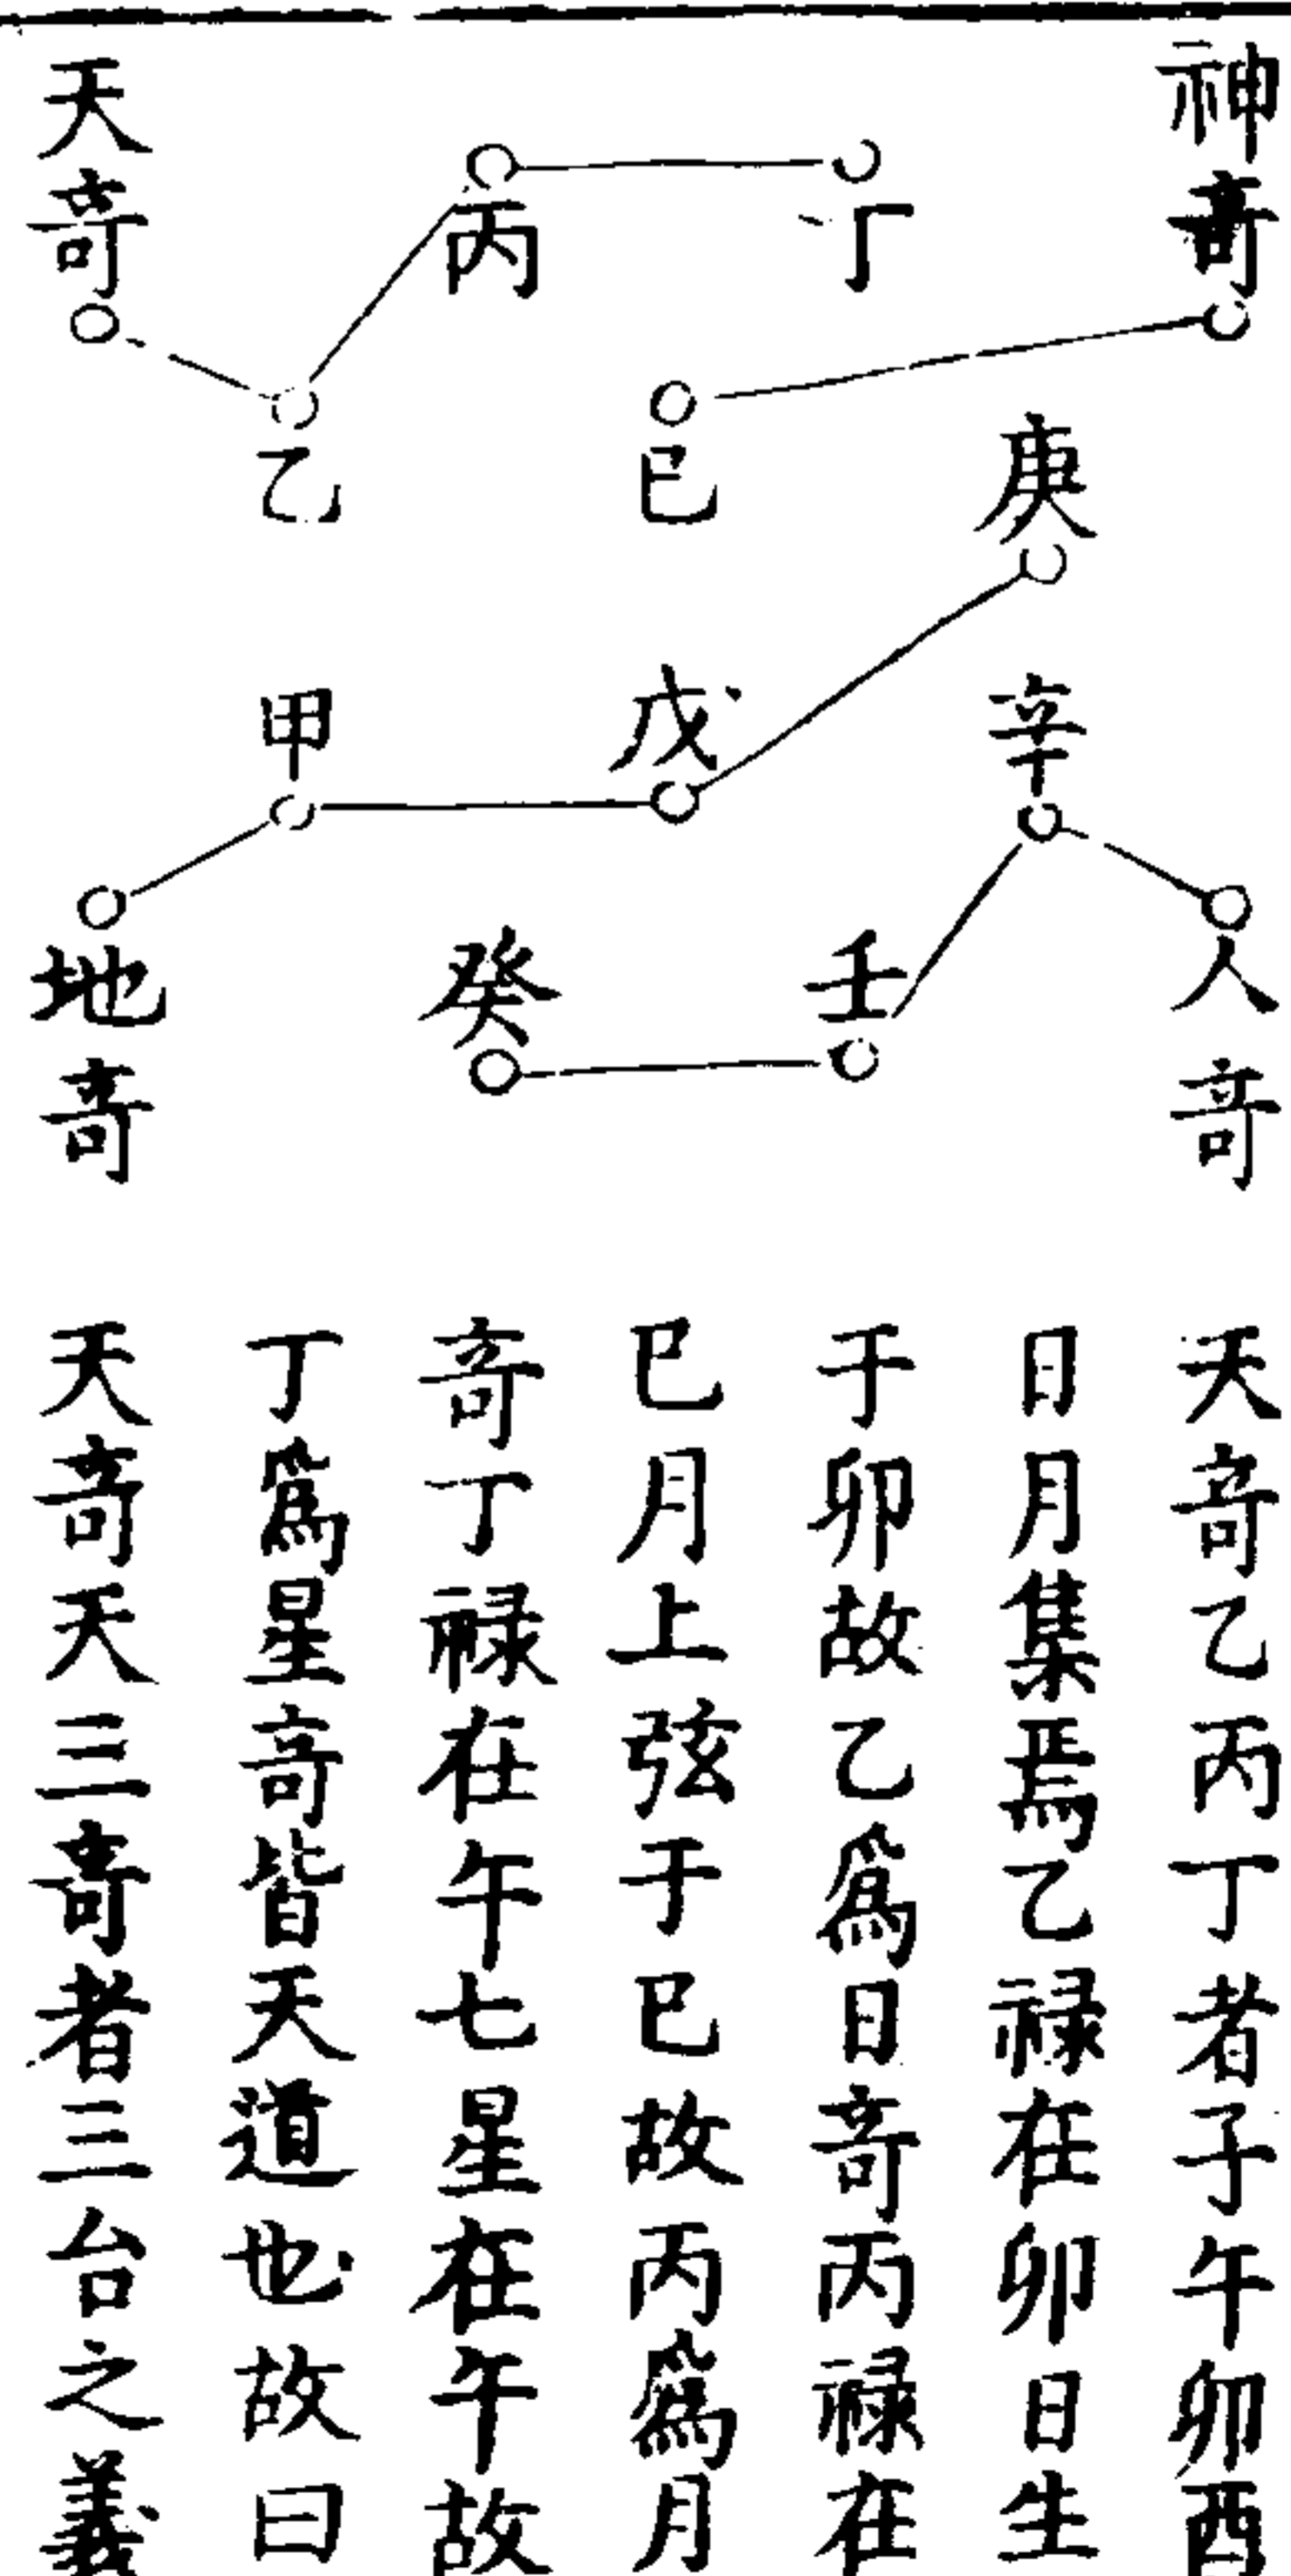 神竒
人竒
庚
辛
丁
壬
巳
戊
丙
癸
乙
甲
天竒
地竒
天竒乙丙丁者子午卯酉
日月集焉乙禄在卯日生
于卯故乙爲日竒丙禄在
巳月上弦于巳故丙爲月
竒丁禄在午七星在午故
丁爲星竒皆天道也故曰
天竒天三竒者三台之義